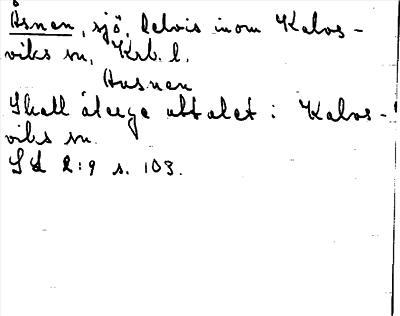 Åsnen, sjö, delvis inom Kalvs-
viks sn, Krb. l.
Ausnen
Skall återge uttalet: Kalvs-
viks sn.
Sd 2:9 s. 103.